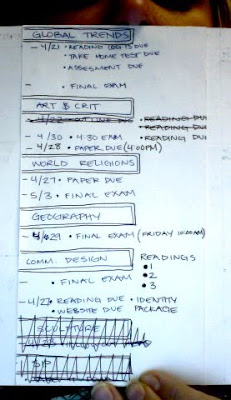 GLOBAL TRENDS
- 4/21 • READING LOG IS DUE
• TAKE HOME TEST DUE
• ASSESSMENT DUE
- • FINAL EXAM
ART & CRIT
- 4/22 DUE • READING DUE
• READING DUE
- 4/30 • 4:30 EXAM • READING DUE
- 4/28 • PAPER DUE (4:00PM)
WORLD RELIGIONS
- 4/27 • PAPER DUE
- 5/3 • FINAL EXAM
GEOGRAPHY
- 4/29 • FINAL EXAM (FRIDAY 10:00AM)
COMM. DESIGN READINGS
• 1
- • FINAL EXAM • 2
• 3
- 4/27 • READING DUE • IDENTITY
• WEBSITE DUE PACKAGE
SCULPTURE